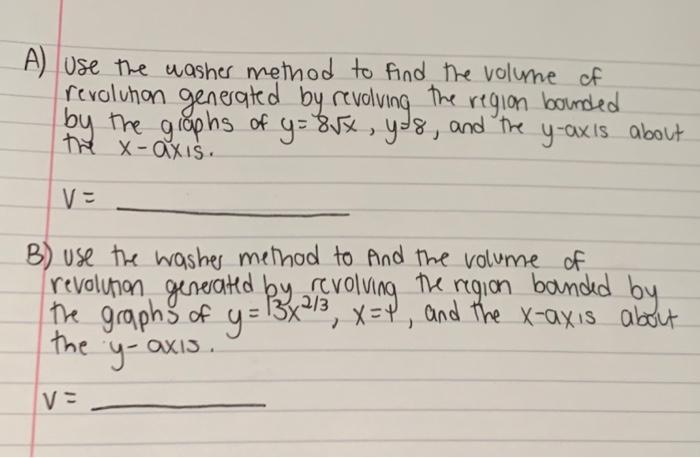 A) Use the washer method to find the volume of
revolution generated by revolving the region bounded
by the graphs of y=8√x, y=8, and the y-axis about
the x-axis.
V =
B) use the washer method to find the volume of
revolution generated by revolving the region bounded by
the graphs of y=13x^2/3, x=1, and the x-axis about
the y-axis.
V =